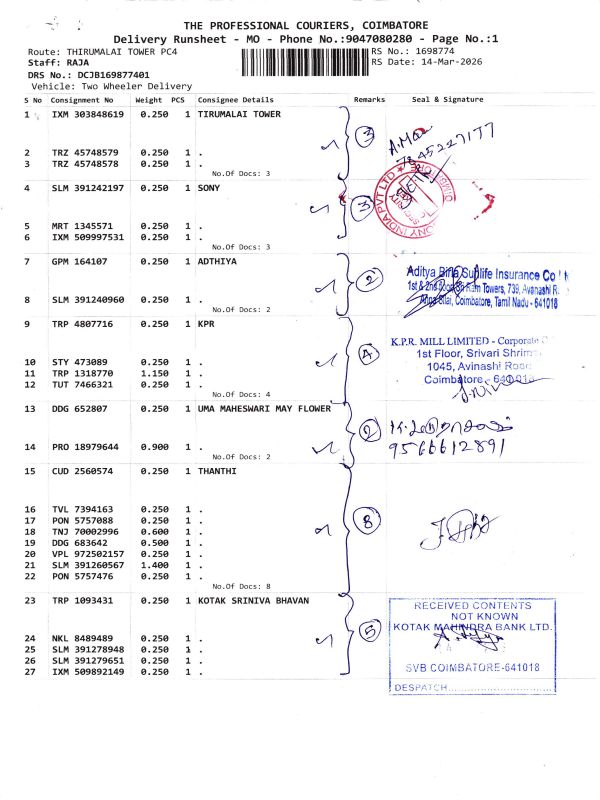 THE PROFESSIONAL COURIERS, COIMBATORE
Delivery Runsheet - MO - Phone No.:9047080280 - Page No.:1
Route: THIRUMALAI TOWER PC4 RS No.: 1698774
Staff: RAJA RS Date: 14-Mar-2026
DRS No.: DCJB169877401
Vehicle: Two Wheeler Delivery
S No Consignment No Weight PCS Consignee Details Remarks Seal & Signature
1 IXM 303848619 0.250 1 TIRUMALAI TOWER
2 TRZ 45748579 0.250 1 .
3 TRZ 45748578 0.250 1 .
No.Of Docs: 3
3
4 SLM 391242197 0.250 1 SONY
5 MRT 1345571 0.250 1 .
6 IXM 509997531 0.250 1 .
No.Of Docs: 3
3
7 GPM 164107 0.250 1 ADTHIYA
8 SLM 391240960 0.250 1 .
No.Of Docs: 2
2
Aditya Birla Sunlife Insurance Co
Towers, 739, Avanashi R
Coimbatore, Tamil Nadu - 641018
9 TRP 4807716 0.250 1 KPR
10 STY 473089 0.250 1 .
11 TRP 1318770 1.150 1 .
12 TUT 7466321 0.250 1 .
No.Of Docs: 4
4
K.P.R. MILL LIMITED - Corporate
1st Floor, Srivari Shrim
1045, Avinashi Road
Coimbatore - 641018
13 DDG 652807 0.250 1 UMA MAHESWARI MAY FLOWER
14 PRO 18979644 0.900 1 .
No.Of Docs: 2
2
9566612891
15 CUD 2560574 0.250 1 THANTHI
16 TVL 7394163 0.250 1 .
17 PON 5757088 0.250 1 .
18 TNJ 70002996 0.600 1 .
19 DDG 683642 0.500 1 .
20 VPL 972502157 0.250 1 .
21 SLM 391260567 1.400 1 .
22 PON 5757476 0.250 1 .
No.Of Docs: 8
8
23 TRP 1093431 0.250 1 KOTAK SRINIVA BHAVAN
24 NKL 8489489 0.250 1 .
25 SLM 391278948 0.250 1 .
26 SLM 391279651 0.250 1 .
27 IXM 509892149 0.250 1 .
5
RECEIVED CONTENTS
NOT KNOWN
KOTAK MAHINDRA BANK LTD.
SVB COIMBATORE-641018
DESPATCH